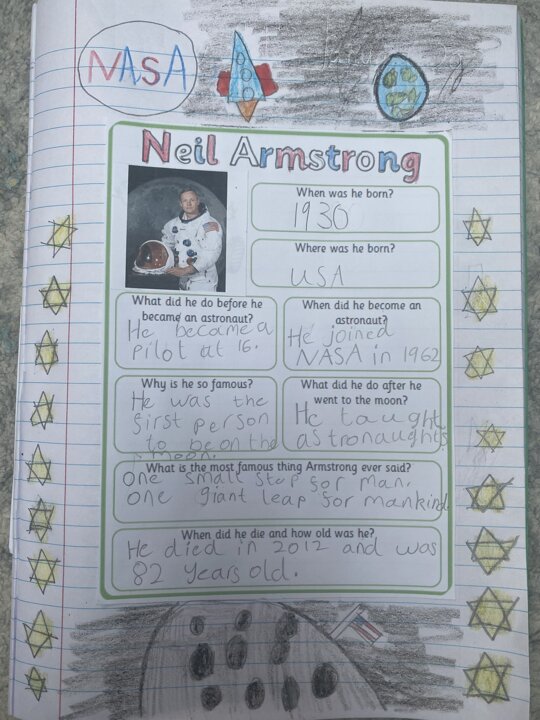 NASA
Neil Armstrong
When was he born?
1930
Where was he born?
USA
What did he do before he
became an astronaut?
He became a
pilot at 16.
When did he become an
astronaut?
He joined
NASA in 1962
Why is he so famous?
He was the
first person
to be on the
moon.
What did he do after he
went to the moon?
He taught
astronaughts
What is the most famous thing Armstrong ever said?
one small step for man.
one giant leap for mankind.
When did he die and how old was he?
He died in 2012 and was
82 years old.